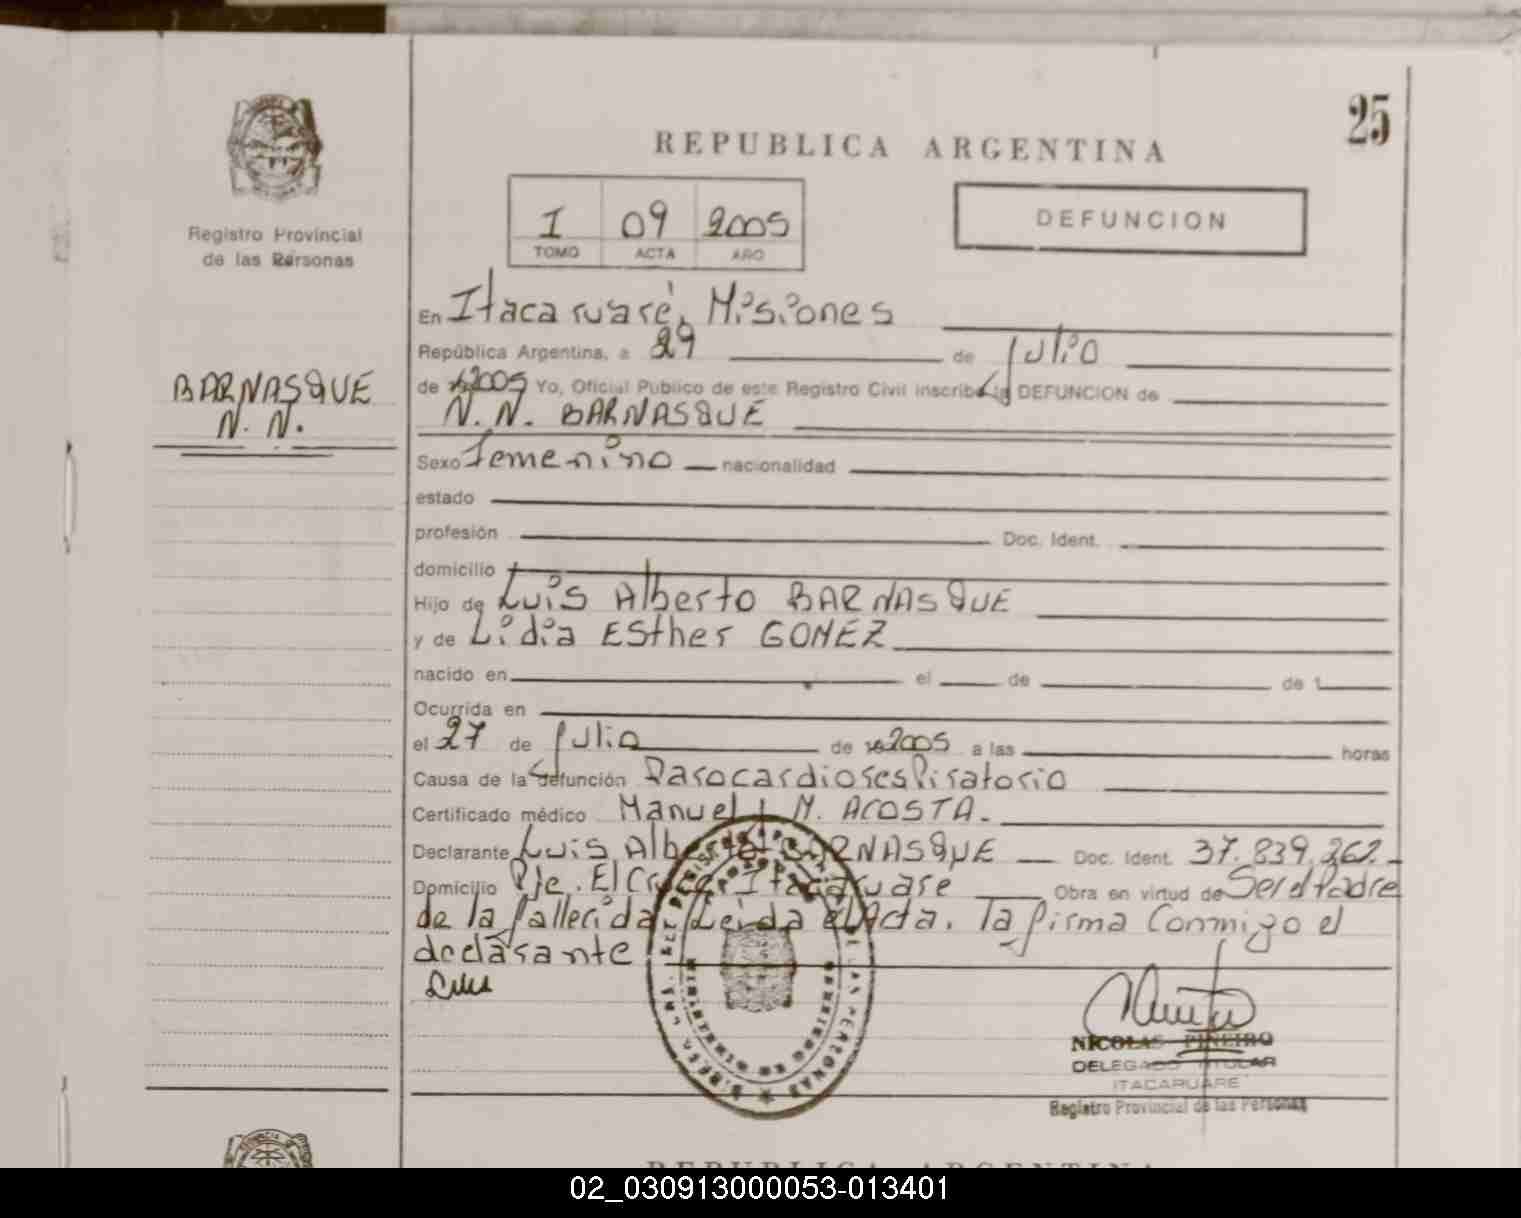 25
REPUBLICA ARGENTINA
Registro Provincial
de las Personas
I 09 2005
TOMO ACTA AÑO
DEFUNCION
BARNASQUE
N. N.
En Itacaruaré, Misiones
República Argentina, a 29 de julio
de 2005 Yo, Oficial Publico de este Registro Civil inscribo la DEFUNCION de
N. N. BARNASQUE
Sexo Femenino nacionalidad
estado
profesión Doc. Ident.
domicilio
Hijo de Luis Alberto BARNASQUE
y de Lidia ESther GOMEZ
nacido en el de de 1
Ocurrida en
el 27 de julio de 2005 a las horas
Causa de la defunción Parocardiorespiratorio
Certificado médico Manuel M. ACOSTA.
Declarante Luis Alberto BARNASQUE Doc. Ident. 37.839.262.
Domicilio Pje. El Itacaruare Obra en virtud de Ser el Padre
de la fallecida. Leida el Acta, la firma Conmigo el
declarante
Luis
NICOLAS PIÑEIRO
DELEGADO TITULAR
ITACARUARE
Registro Provincial de las Personas
REPUBLICA ARGENTINA
02_030913000053-013401